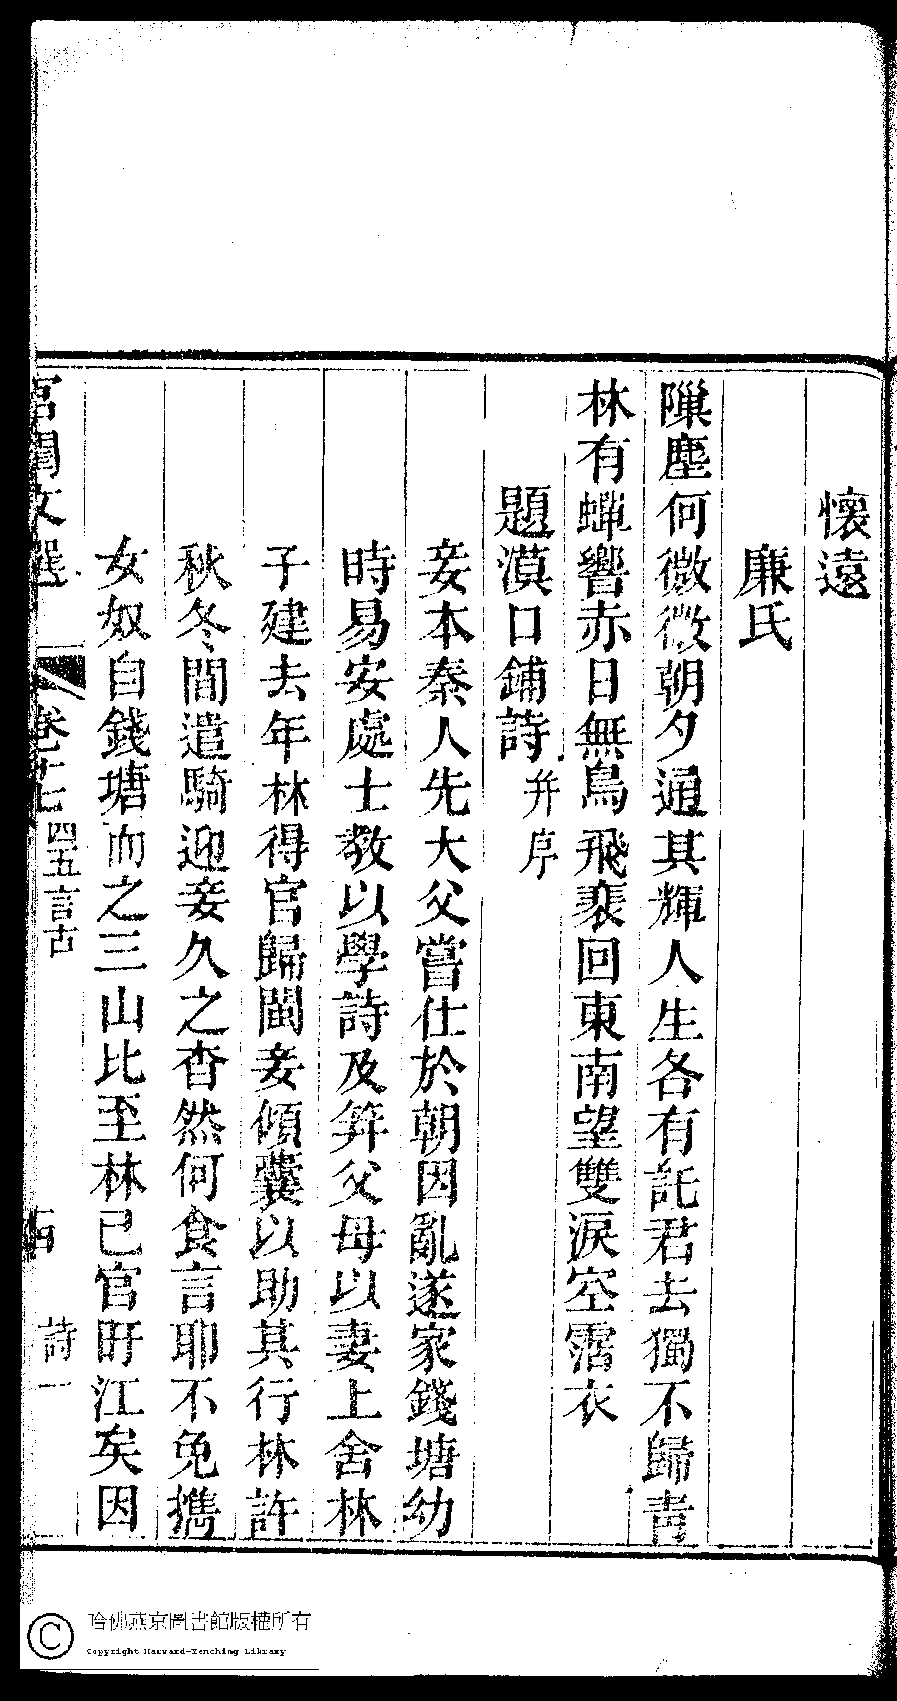 懷遠
廉氏
隟塵何微微朝夕通其輝人生各有託君去獨不歸青
林有蟬響赤日無鳥飛裴回東南望雙淚空霑衣
題漠口鋪詩 并序
妾本秦人先大父嘗仕於朝因亂遂家錢塘幼
時易安處士教以學詩及笄父母以妻上舍林
子建去年林得官歸閩妾傾囊以助其行林許
秋冬間遣騎迎妾久之杳然何食言耶不免攜
女奴自錢塘而之三山比至林已官盱江矣因
宮閨文選 卷十七 四五言古 詩一
哈佛燕京圖書館版權所有
Copyright Harvard-Yenching Library